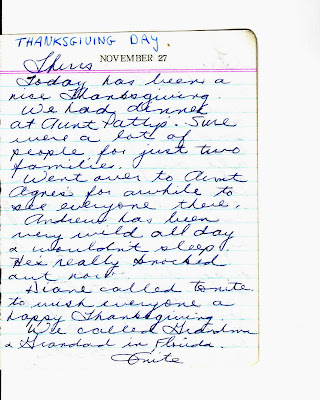 THANKSGIVING DAY
NOVEMBER 27
Thurs
Today has been a
nice Thanksgiving.
We had dinner
at Aunt Pattys. Sure
were a lot of
people for just two
families.
Went over to Aunt
Agnes for awhile to
see everyone there.
Andrew has been
very wild all day
& wouldn't sleep.
He's really knocked
out now.
Diane called tonite
to wish everyone a
happy Thanksgiving.
We called Grandma
& Grandad in Florida.
Tonite